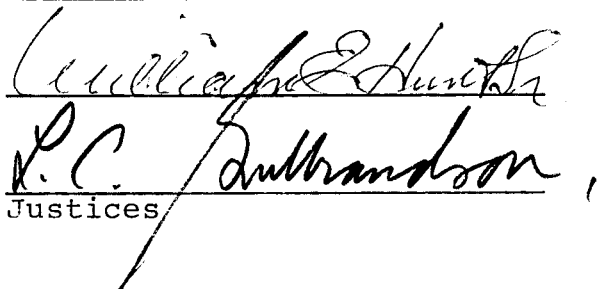 William E Hunt Sr
L. C. Gulbrandson
Justices